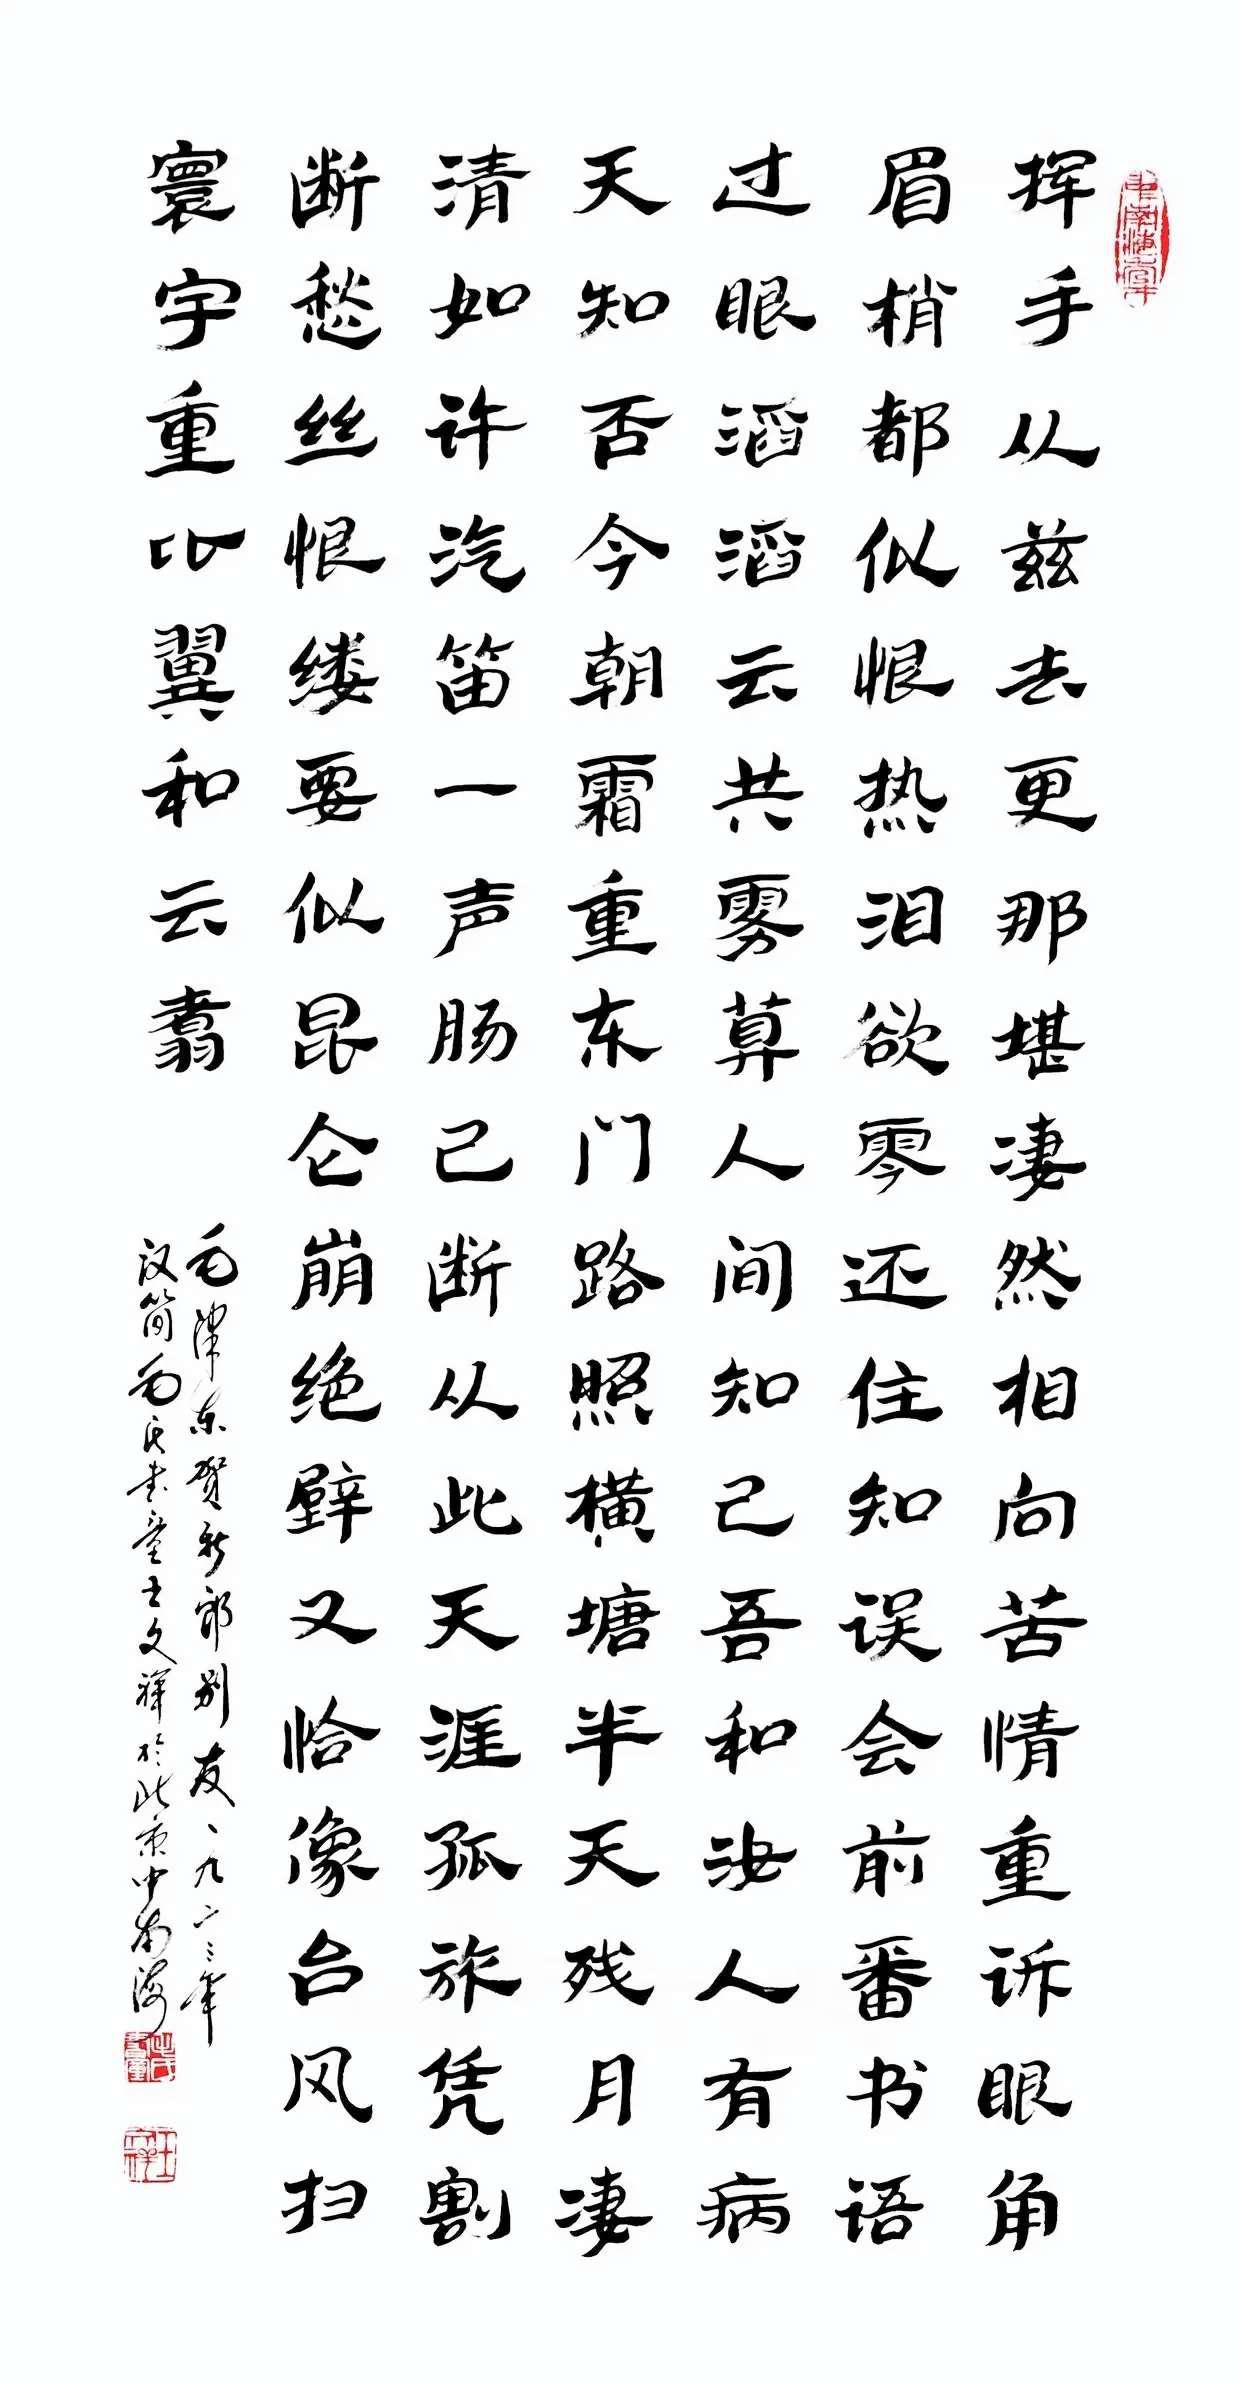 挥手从兹去更那堪凄然相向苦情重诉眼角
眉梢都似恨热泪欲零还住知误会前番书语
过眼滔滔云共雾算人间知己吾和汝人有病
天知否今朝霜重东门路照横塘半天残月凄
清如许汽笛一声肠已断从此天涯孤旅凭割
断愁丝恨缕要似昆仑崩绝壁又恰像台风扫
寰宇重比翼和云翥
毛泽东贺新郎别友一九二三年
汉简毛氏书童王文祥於北京中南海